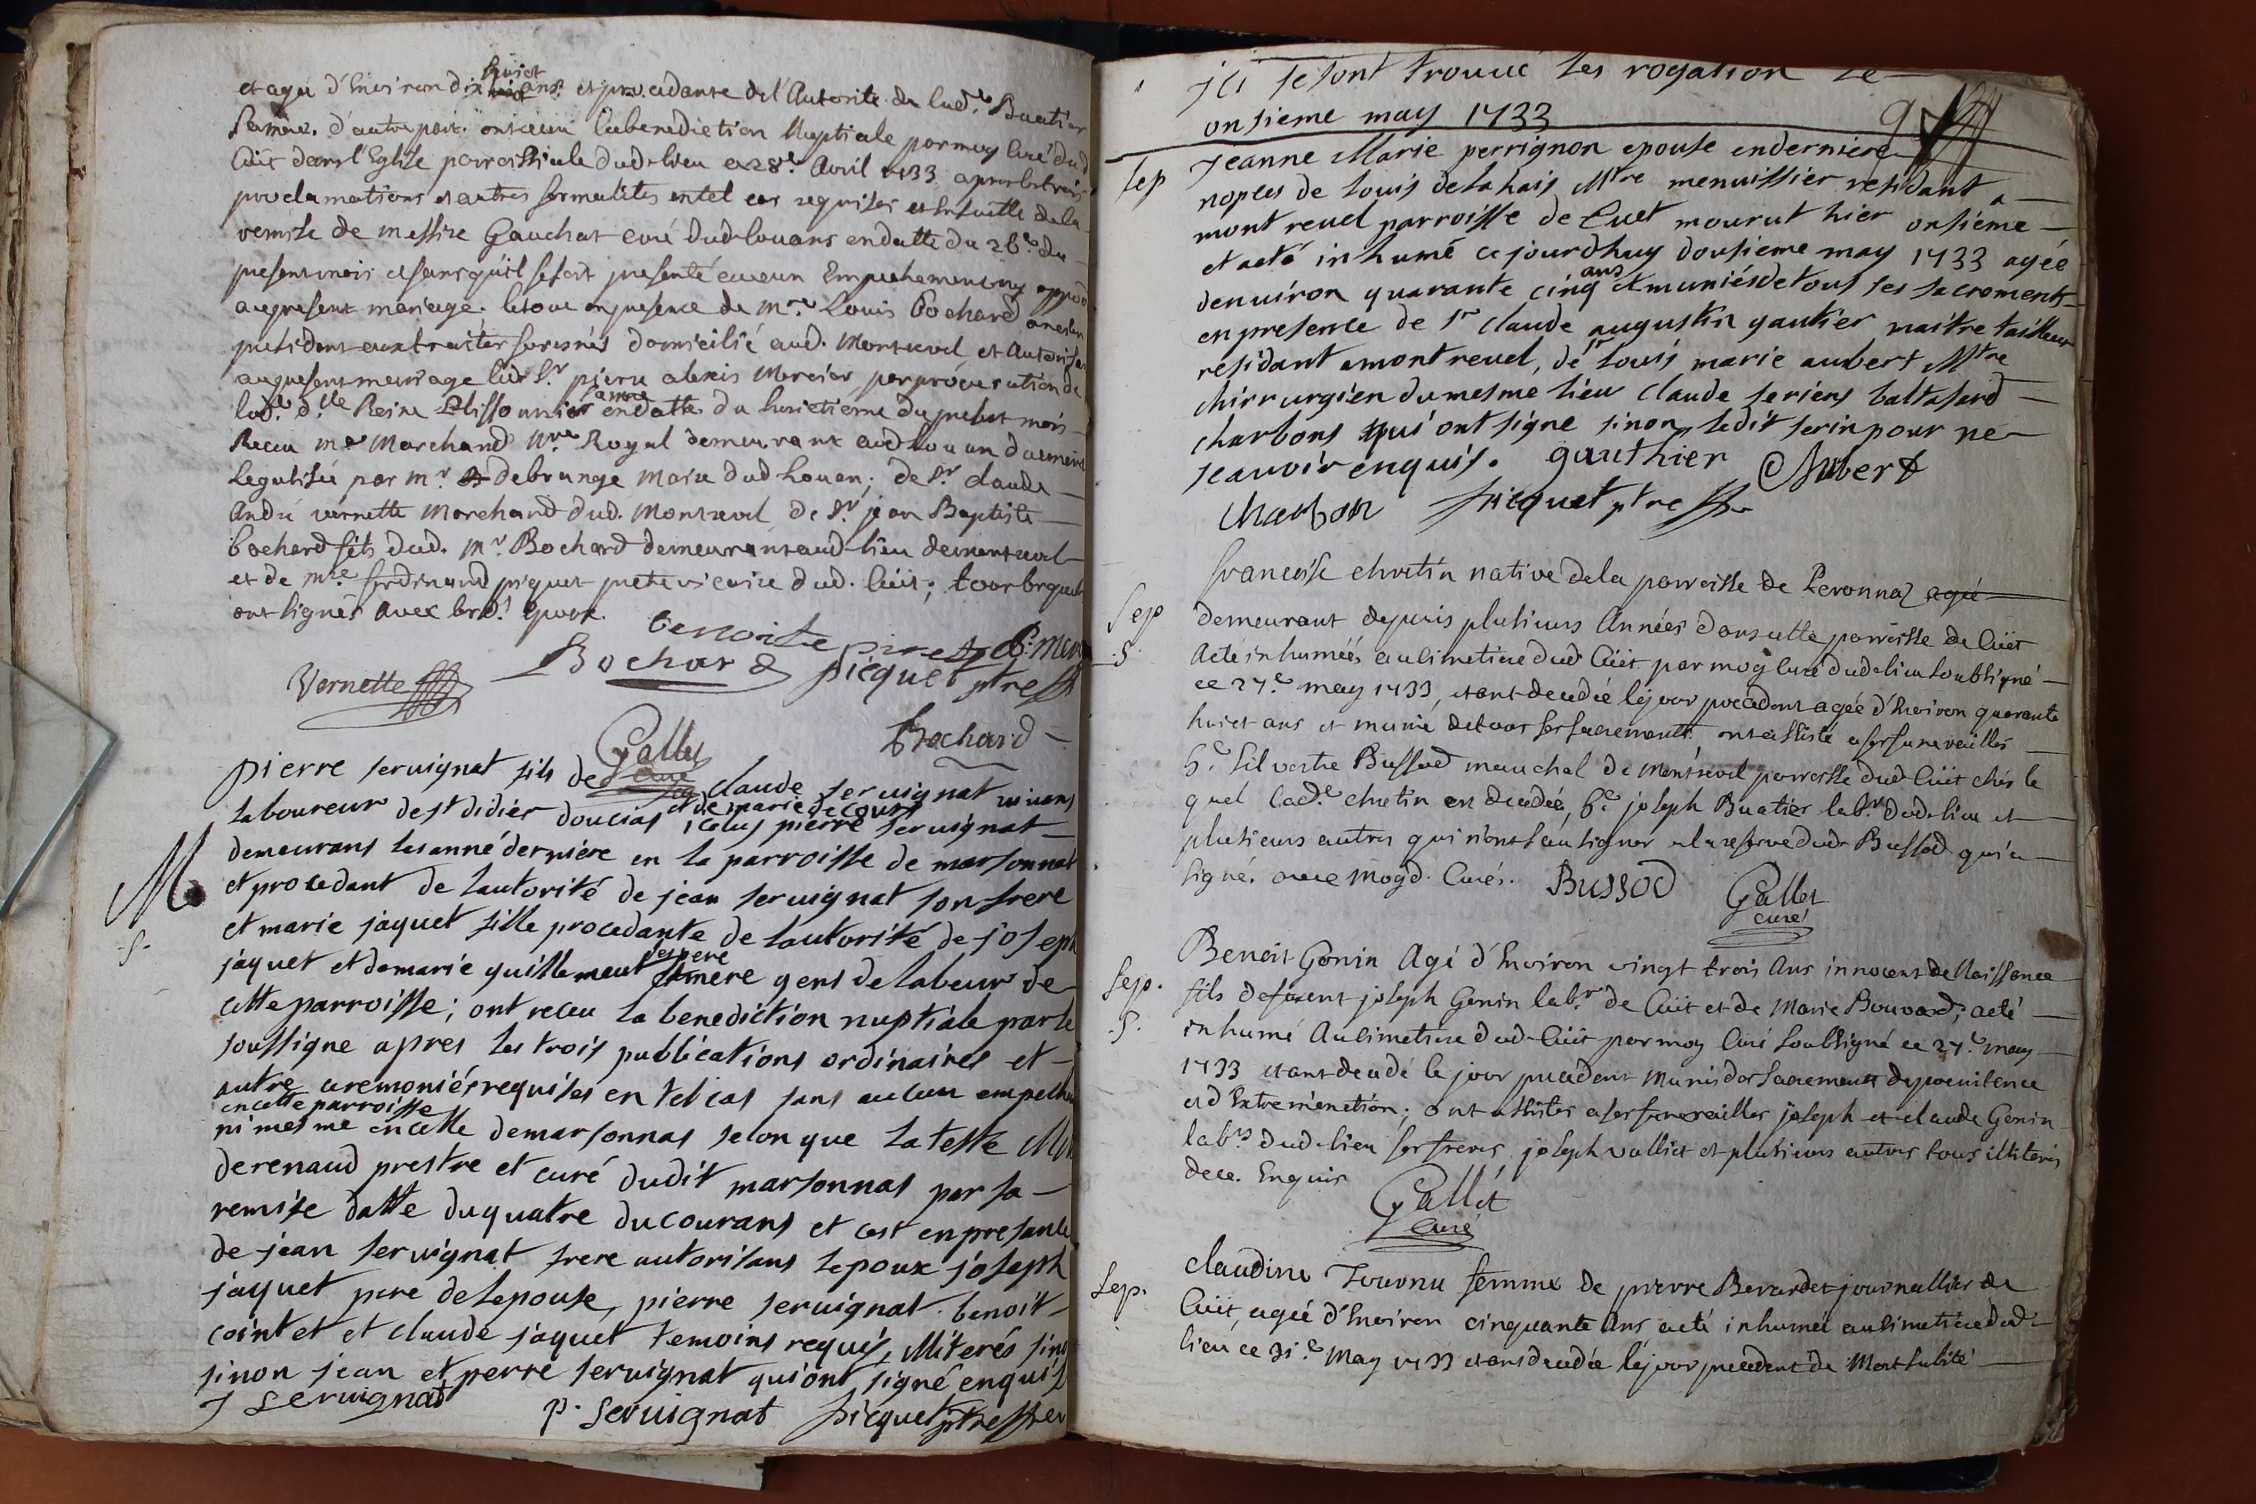 et agée d'Environ dix huict ans et procedante de l'Autorité de lad.e Buatier
sa mere d'autre part. ont receu la benediction Nuptiale par moy Curé dud
Cüet dans l'Eglise parroissiale dud. lieu ce 28.e Avril 1733 apres les trois
proclamations et autres formalités en tel cas requises et ensuitte de la
remise de messire Gauchat curé dud. Louans en datte du 26.e du
present mois et sans qu'il se soit presenté aucun Empechement ny oppo
au present mariage. le tout en presence de M.re Louis Bochard ancien
president aux traittes foraines domicilié aud. Montrevel et Autorisa
au present mariage led. S.r pierre alexis Mercier par procuration de
lad.e d.lle Reine Plissonnier sa mere en datte du huictieme du present mois
Receu M.e Marchand N.re Royal demeurant aud. Louan duement
Legalisée par M.r debrange Maire dud. Louan; de S.r claude
André vernette Marchand dud. Montrevel de S.r jean Baptiste
bochard fils dud. M.r Bochard demeurant aud. lieu de montrevel
et de M.re ferdinand piquet pretre vicaire dud. Cüet; tous lesquels
ont signés avec lesd.s Epoux.
benoite pierre A. Merc
Vernette Bochard picquet ptre
Gallet curé Bochard
pierre seruignat fils de claude seruignat vivans
et de marie decourt
laboureur de st didier doucias icelus pierre seruignat
demeurans lesanné derniere en la parroisse de marsonnas
M
et procedant de lautorité de jean seruignat son frere
.S.
et marie jaquet fille procedante de lautorité de joseph
jaquet et de marie guillemeut ses pere et mere gens de labeur de
cette parroisse; ont receu la benediction nuptiale par le
soussigne apres les trois publications ordinaires et
autre ceremoniés requises en tel cas sans aucun empeche
en cette parroisse
ni mesme en celle de marsonnas selon que latesté Mr
derenaud prestre et curé dudit marsonnas par sa
remise datté du quatre du courans et cest en presance
de jean seruignat frere autorisans lepoux joseph
jaquet pere de lepouse, pierre seruignat benoit
cointet et claude jaquet temoins requis, illiterés sino
sinon jean et pierre seruignat qui ont signé enquis
J Seruignat p. Seruignat picquet ptre
ici se sont trouué les rogation le
onsieme may 1733
Sep
Jeanne Marie perrignon epouse en derniere
nopces de louis delahais Mtre menuissier residant a
mont reuel parroisse de Cuet mourut hier onsieme
et acté inhumé ce jourdhuy dousieme may 1733 agée
denuiron quarante cinq ans et muniés de tous ses sacrements
en presence de Sr claude augustin gautier maitre tailleur
residant a mont reuel, de Sr louis marie aubert Mtre
chirrurgien du mesme lieu claude seriens baltasard
charbons qui ont signe sinon ledit serin pour ne
scauoir enquis. gauthier Aubert
charbon picquet ptre
Sep
.S.
francoise chretin native de la parroisse de Peronnas agée
demeurant depuis plusieurs Années dans cette parroisse de Cüet
Acté inhumée au cimetiere dud. Cüet par moy curé dud. lieu soubsigné
ce 27.e may 1733, etant decedée le jour precedent agée d'Environ quarante
huict ans et munie de tous ses sacrements. ont assisté a ses funerailles
h.e silvestre Bussod marechal de Montrevel parroisse dud. Cüet chés le
quel lad.e chretin est decedée, h.e joseph Buatier lab.r dud. lieu et
plusieurs autres qui n'ont sceu signer a la reserve dud. Bussod qui a
signé avec moy d. Curé. BUSSOD Gallet curé
Sep.
.S.
Benoit Gonin Agé d'Environ vingt trois Ans innocent de Naissance
fils de feu joseph Gonin lab.r de Cüet et de Marie Bouvard, acté
inhumé Au cimetiere dud. Cüet par moy Curé soubsigné ce 27.e may
1733 etant decedé le jour precedent Muni des sacrements de poenitence
et d'Extremeonction; ont assistés a ses funerailles joseph et claude Gonin
lab.rs dud. lieu ses freres joseph valliet et plusieurs autres tous illiterés
de ce Enquis Gallet
Curé
Sep.
claudine Tournu femme de pierre Berardet journallier de
Cüet, agée d'Environ cinquante Ans, acté inhumée au cimetiere dud.
lieu ce 31.e may 1733 etant decedée le jour precedent de Mort subite